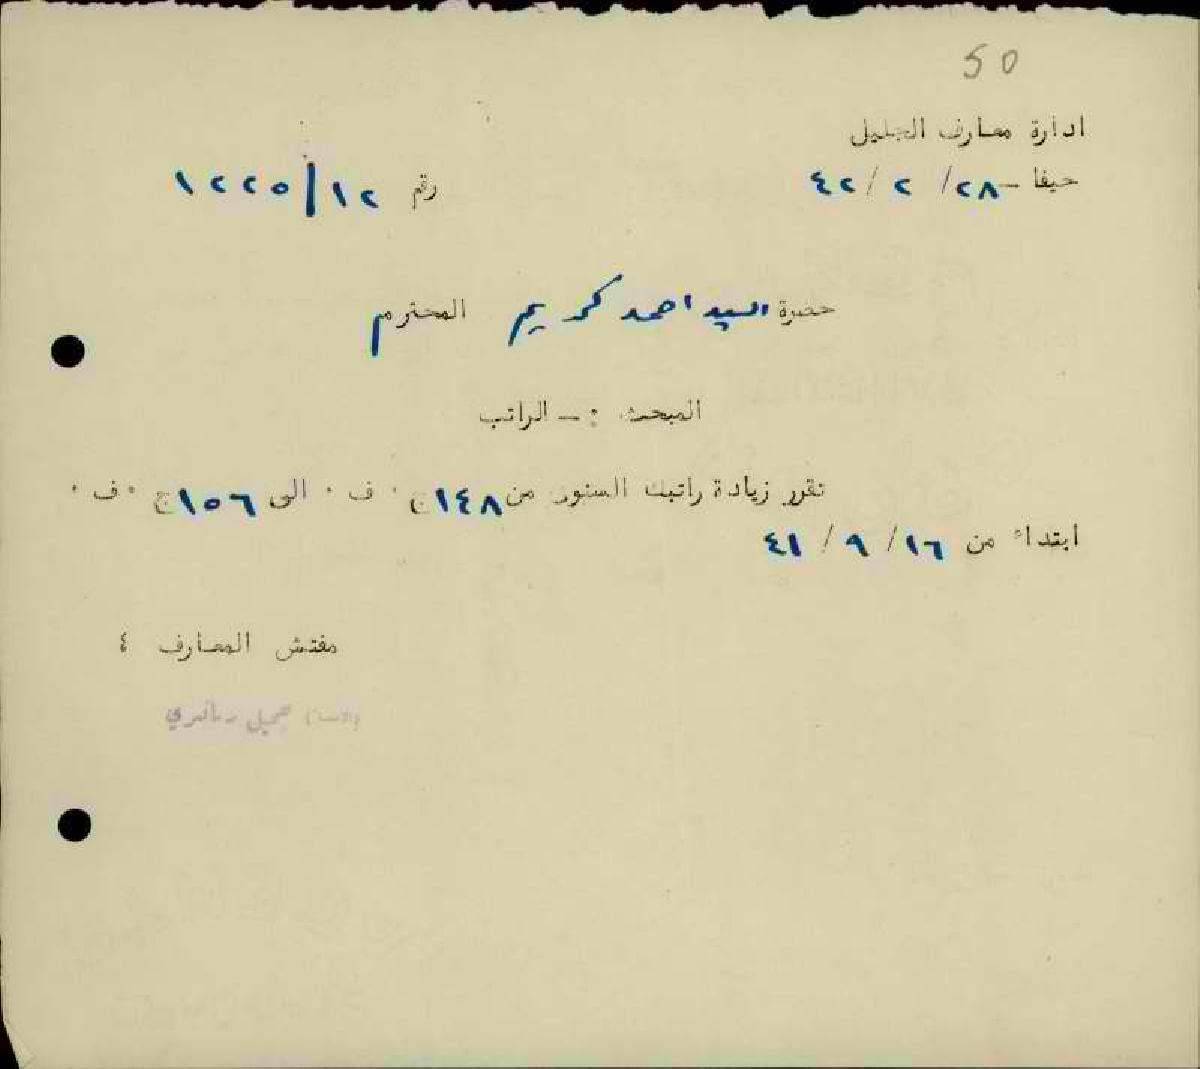 50
ادارة معارف الجليل
حيفا – ٢٨/ ٢ /٤٢ رقم ١٢/١٢٢٥
حضرة السيد احمد كريم المحترم
المبحث :ـ الراتب
تقرر زيادة راتبك السنوي من ١٤٨ ج ٠ ف ٠ الى ١٥٦ ج ٠ ف ٠
ابتداء من ١٦/ ٩ / ٤١
مفتش المعارف ٤
جميل